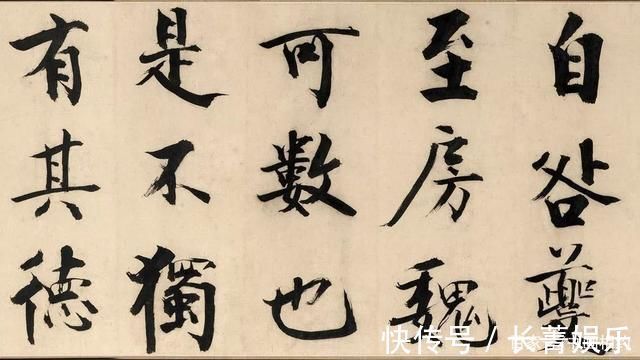 自咎夔
至房魏
可數也
是不獨
有其德
快传号 / 长菁娱乐